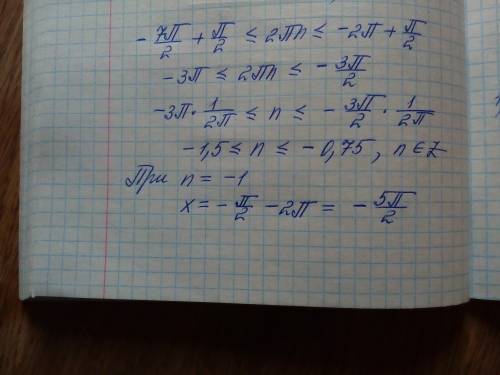 - 7π/2 + π/2 ≤ 2πn ≤ -2π + π/2
-3π ≤ 2πn ≤ - 3π/2
-3π · 1/2π ≤ n ≤ - 3π/2 · 1/2π
-1,5 ≤ n ≤ -0,75, n ∈ Z
При n = -1
x = - π/2 - 2π = - 5π/2